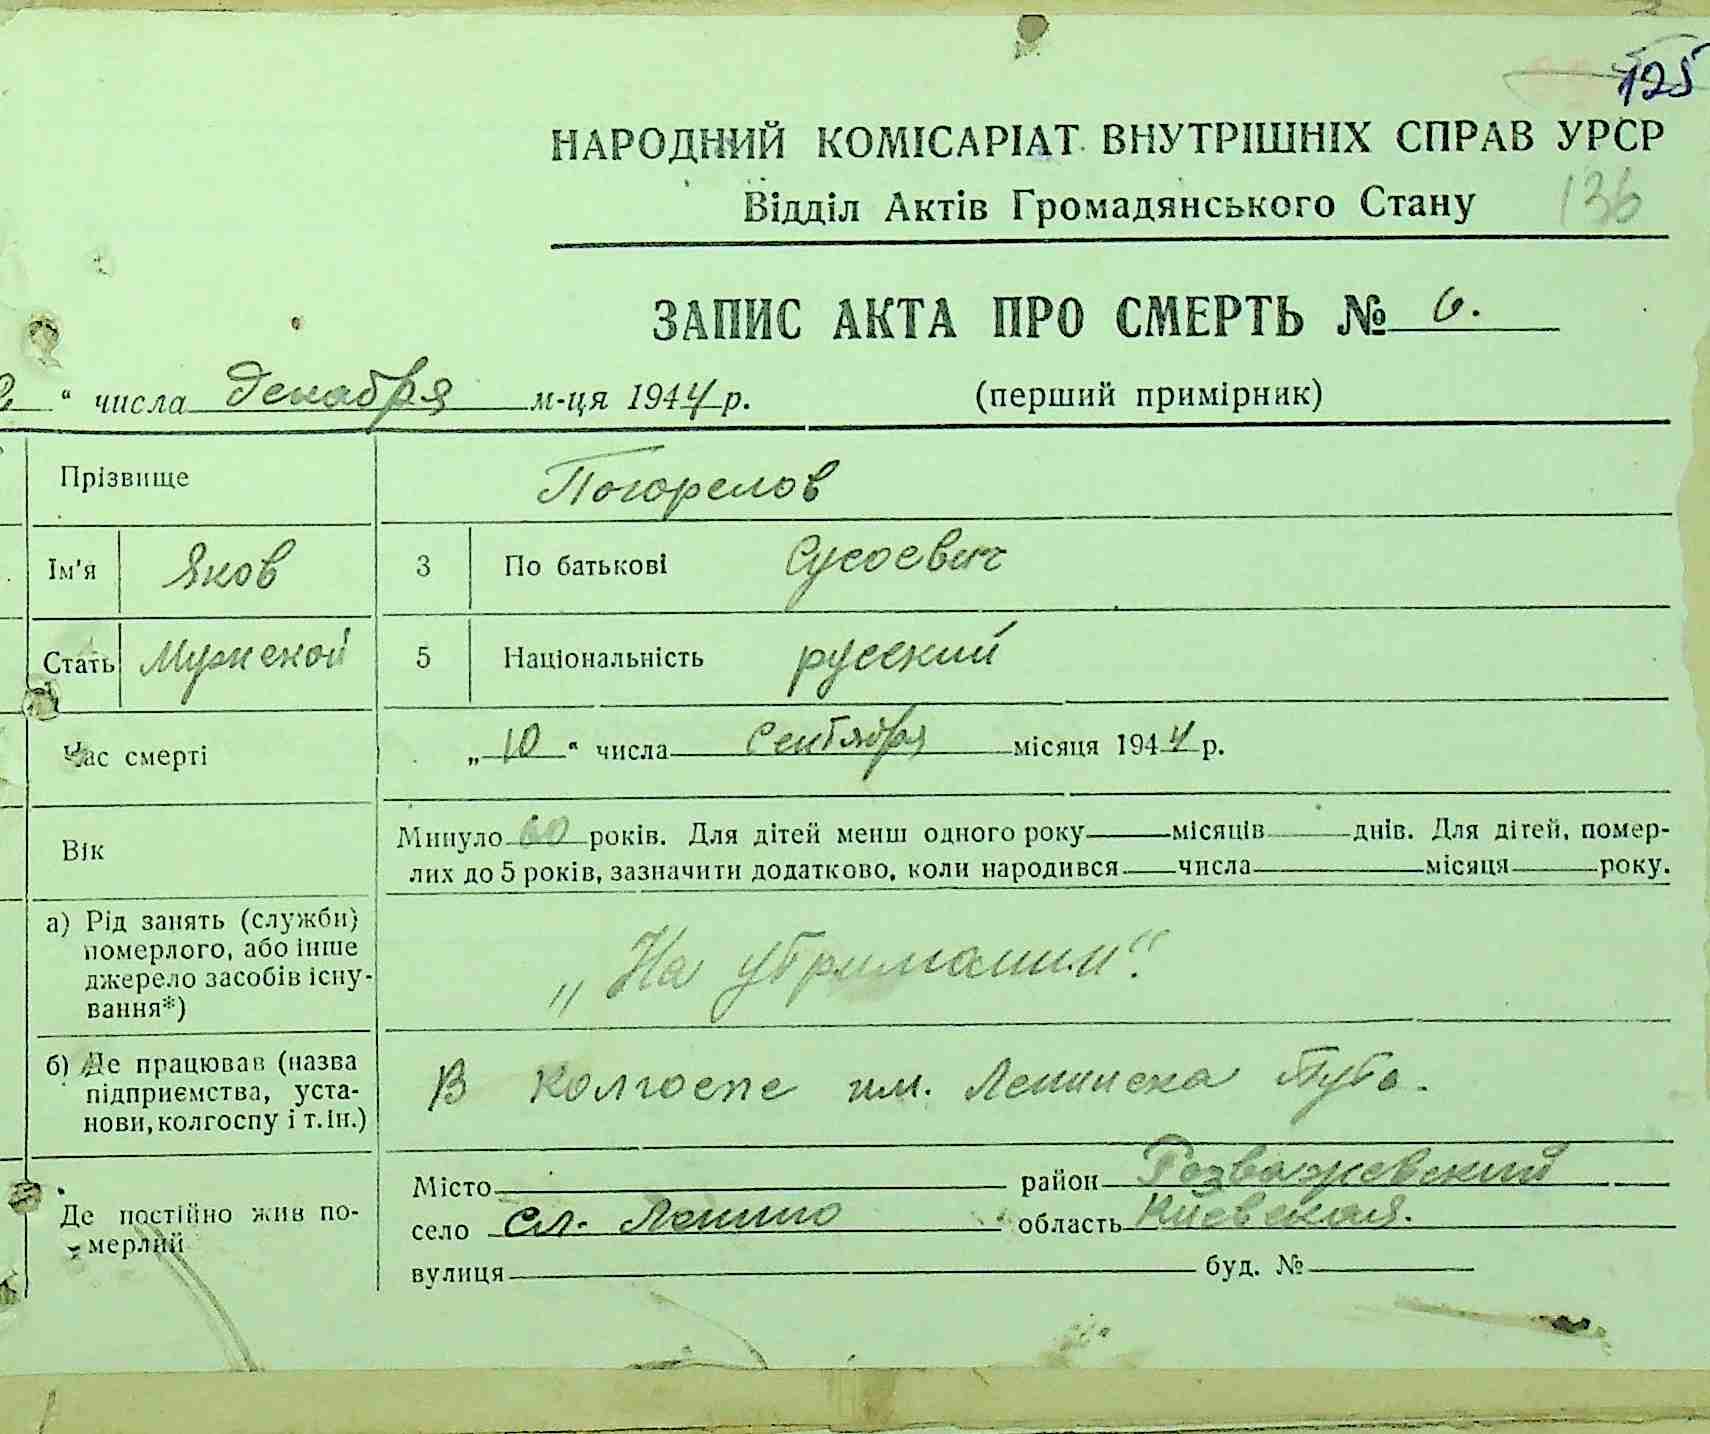 125
НАРОДНИЙ КОМІСАРІАТ ВНУТРІШНІХ СПРАВ УРСР
Відділ Актів Громадянського Стану
136
ЗАПИС АКТА ПРО СМЕРТЬ № 6.
“ числа декабря м-ця 1944 р. (перший примірник)
Прізвище Погорелов
Ім'я Яков 3 По батькові Сусоевич
Стать Мужской 5 Національність русский
Час смерті „10“ числа Сентября місяця 1944 р.
Вік Минуло 60 років. Для дітей менш одного року місяців днів. Для дітей, помер-
лих до 5 років, зазначити додатково, коли народився числа місяця року.
а) Рід занять (служби)
померлого, або інше
джерело засобів існу-
вання*)
„На утримании“.
б) Де працював (назва
підприємства, уста-
нови, колгоспу і т. ін.)
В колгоспе им. Лениска
Де постійно жив по-
мерлий
Місто район Розважевский
село сл. Ленино область Киевская.
вулиця буд. №